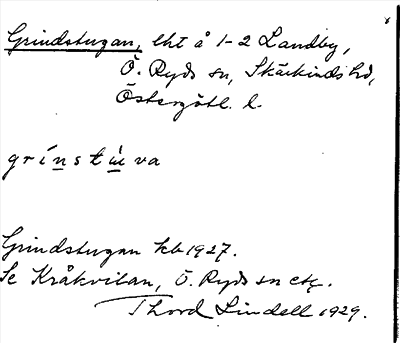 Grindstugan, lht å 1-2 Landby,
Ö. Ryds sn, Skärkinds hd,
Östergötl. l.
grínstùva
Grindstugan kb 1927.
Se Kråkvilan, Ö. Ryds sn etc.
Thord Lindell 1929.